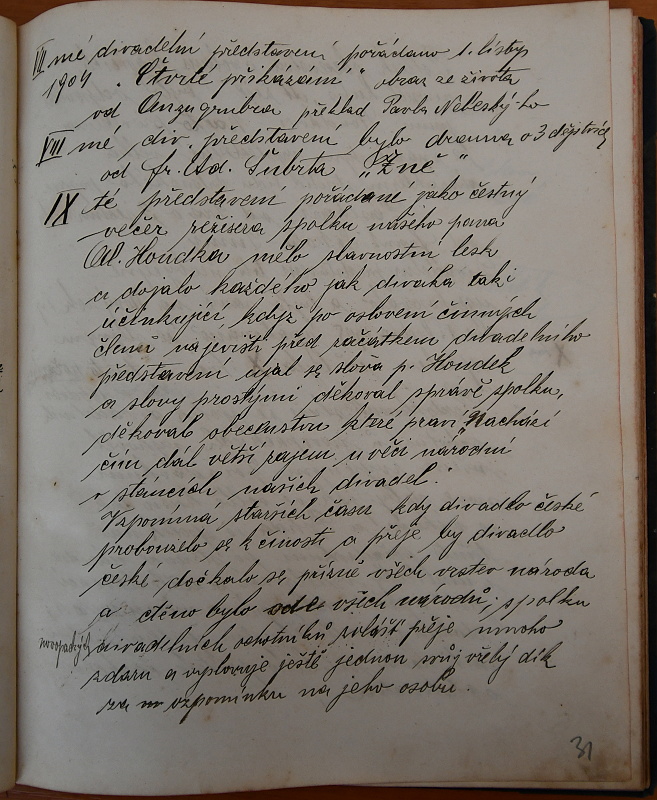 VII mé divadelní představení pořádano 1. listop
1904 „Čtvrté přikázání" obraz ze života
od Anzugrubra překlad Pavla Nebeský-ho
VIII mé div. představení bylo drama o 3 dějstvích
od Fr. Ad. Šubrta „Žně"
IX té představení pořádané jako čestný
večer režiséra spolku našeho pana
Al. Houdka mělo slavnostní lesk
a dojalo každeho jak diváka tak i
účinkující když po oslovení činných
členů na jevišti před začátkem divadelního
představení ujal se slova p. Houdek
a slovy prostými děkoval správě spolku,
děkoval obecenstvu které praví „Nachází
čím dál větší zajem u věci národní
v stáncích našich divadel."
Vzpomíná starších času kdy divadlo české
probouzelo se k činosti a přeje by divadlo
české dočkalo se přízně všech vrstev národa
a ctěno bylo ode všech národů, spolku
novopackých divadelních ochotníků zvlášť přeje mnoho
zdaru a vyslovuje ještě jednou svůj vřelý dík
za vzpomínku na jeho osobu.
31